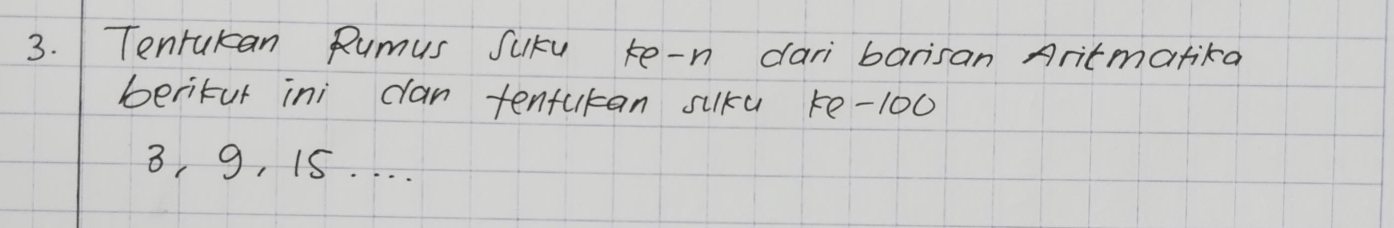 3. Tentukan Rumus Suku ke-n dari barisan Aritmatika
berikut ini dan tentukan suku ke-100
3, 9, 15 ....